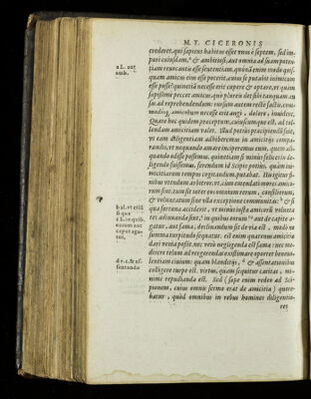 M. T. CICERONIS
crederet, qui sapiens habitus esset unus è septem, sed im-
puri cuiusdam, & ambitiosi, aut omnia ad suam poten-
tiam reuocantis esse sententiam. quonam enim modo quis-
quam amicus eius esse poterit, cuius se putabit inimicum
esse posse? quinetiã necesse erit cupere & optare, ut quàm
sæpissime peccet amicus, quò plures det sibi tanquam an-
sas ad reprehendendum: rursum autem recte factis, com-
modisq́; amicorum necesse erit angi, dolere, inuidere.
Quare hoc quidem præceptum, cuiuscunque est, ad tol-
lendam amicitiam ualet. Illud potius præcipiendũ fuit,
ut eam diligentiam adhiberemus in amicitijs compa-
randis, ut nequando amare inciperemus eum, quem ali-
quando odisse possemus. quinetiam si minus felices in de-
ligendo fuissemus, ferendum id Scipio potius, quàm ini-
micitiarum tempus cogitandum putabat. His igitur fi-
nibus utendum arbitror: ut, cùm emendati mores amico-
rum sint, tum sit inter eos omnium rerum, consiliorum,
& uoluntatum sine ulla exceptione communitas: & si
qua fortuna acciderit, ut minus iustæ amicorũ uolunta-
tes adiuuandæ sint, in quibus eorum aut de capite a-
gatur, aut fama, declinandum sit de uia est, modò ne
summa turpitudo sequatur. est enim quatenus amicitiæ
dari uenia possit. nec uerò negligenda est fama: nec me-
diocre telum ad res gerendas existimare oportet beneuo-
lentiam ciuium: quam blanditijs, & assentationibus
colligere turpe est. uirtus, quam sequitur caritas, mi-
nime repudianda est. Sed (sæpe enim redeo ad Sci-
pionem, cuius omnis sermo erat de amicitia) quere-
batur, quòd omnibus in rebus homines diligentio-
res